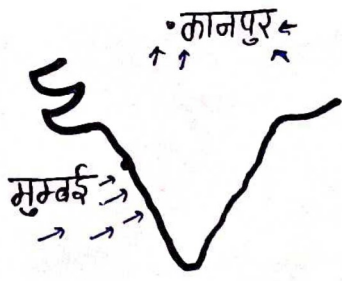 कानपुर
मुम्बई